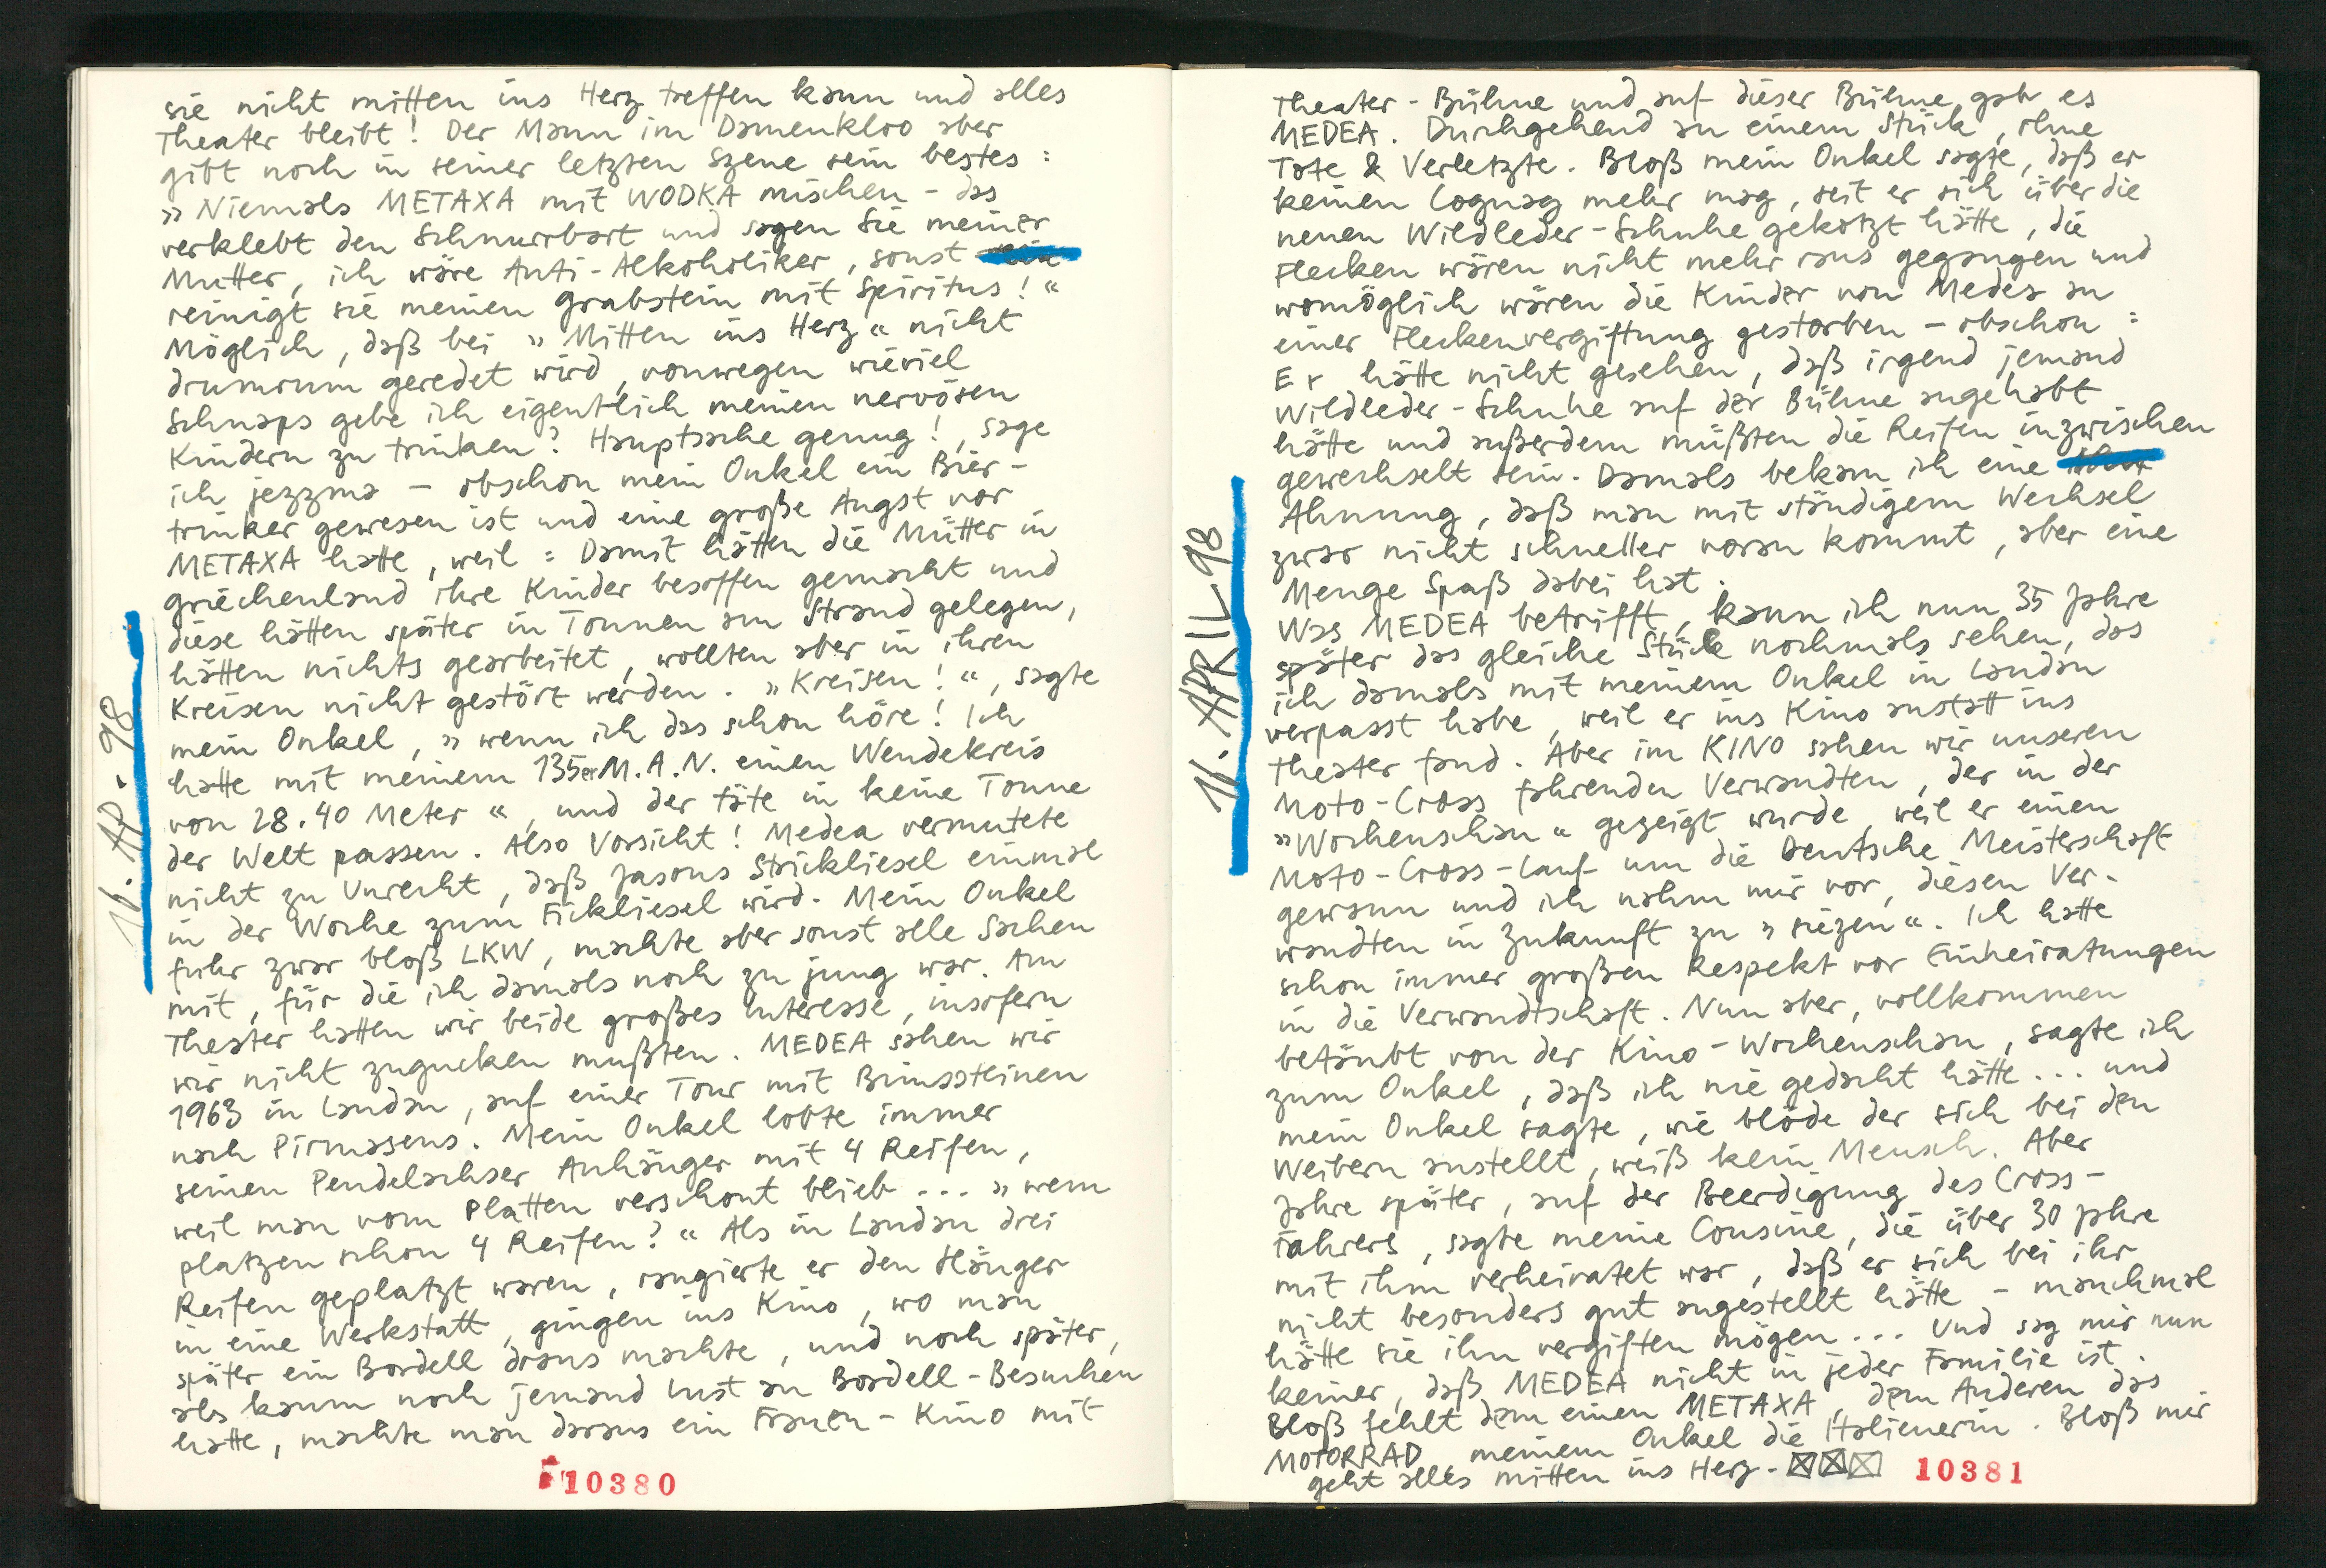 sie nicht mitten ins Herz treffen kann und alles
Theater bleibt! Der Mann im Damenkloo aber
gibt noch in seiner letzten Szene sein bestes :
»Niemals METAXA mit WODKA mischen - das
verklebt den Schnurrbart und sagen Sie meiner
Mutter, ich wäre Anti-Alkoholiker, sonst
reinigt sie meinen Grabstein mit Spiritus!«
Möglich, daß bei »Mitten ins Herz« nicht
drumrum geredet wird, vonwegen wieviel
Schnaps gebe ich eigentlich meinen nervösen
Kindern zu trinken? Hauptsache genug!, sage
ich jezzma - obschon mein Onkel ein Bier-
trinker gewesen ist und eine große Angst vor
METAXA hatte, weil : Damit hätten die Mütter in
Griechenland ihre Kinder besoffen gemacht und
diese hätten später in Tonnen am Strand gelegen,
hätten nichts gearbeitet, wollten aber in ihren
Kreisen nicht gestört werden. »Kreisen!«, sagte
mein Onkel, »wenn ich das schon höre! Ich
hatte mit meinem 135er M.A.N. einen Wendekreis
von 28.40 Meter«, und der täte in keine Tonne
der Welt passen. Also Vorsicht! Medea vermutete
nicht zu Unrecht, daß Jasons Strickliesel einmal
in der Woche zum Fickliesel wird. Mein Onkel
fuhr zwar bloß LKW, machte aber sonst alle Sachen
mit, für die ich damals noch zu jung war. Am
Theater hatten wir beide großes Interesse, insofern
wir nicht zugucken mußten. MEDEA sahen wir
1963 in Landau, auf einer Tour mit Bimssteinen
nach Pirmasens. Mein Onkel lobte immer
seinen Pendelachser Anhänger mit 4 Reifen,
weil man vom Platten verschont blieb ... »wem
platzen schon 4 Reifen?« Als in Landau drei
Reifen geplatzt waren, rangierte er den Hänger
in eine Werkstatt, gingen ins Kino, wo man
später ein Bordell draus machte, und noch später,
als kaum noch jemand Lust an Bordell-Besuchen
hatte, machte man daraus ein Frauen-Kino mit
16. AP. 98
10380
Theater-Bühne und auf dieser Bühne gab es
MEDEA. Durchgehend an einem Stück, ohne
Tote & Verletzte. Bloß mein Onkel sagte, daß er
keinen Cognag mehr mag, seit er sich über die
neuen Wildleder-Schuhe gekotzt hätte, die
Flecken wären nicht mehr raus gegangen und
womöglich wären die Kinder von Medea an
einer Fleckenvergiftung gestorben - obschon :
Er hätte nicht gesehen, daß irgend jemand
Wildleder-Schuhe auf der Bühne angehabt
hätte und außerdem müßten die Reifen inzwischen
gewechselt sein. Damals bekam ich eine
Ahnung, daß man mit ständigem Wechsel
zwar nicht schneller voran kommt, aber eine
Menge Spaß dabei hat.
Was MEDEA betrifft, kann ich nun 35 Jahre
später das gleiche Stück nochmals sehen, das
ich damals mit meinem Onkel in Landau
verpasst habe, weil er ins Kino anstatt ins
Theater fand. Aber im KINO sahen wir unseren
Moto-Cross fahrenden Verwandten, der in der
»Wochenschau« gezeigt wurde, weil er einen
Moto-Cross-Lauf um die Deutsche Meisterschaft
gewann und ich nahm mir vor, diesen Ver-
wandten in Zukunft zu »siezen«. Ich hatte
schon immer großen Respekt vor Einheiratungen
in die Verwandtschaft. Nun aber, vollkommen
betäubt von der Kino-Wochenschau, sagte ich
zum Onkel, daß ich nie gedacht hätte ... und
mein Onkel sagte, wie blöde der sich bei den
Weibern anstellt, weiß kein Mensch. Aber
Jahre später, auf der Beerdigung des Cross-
fahrers, sagte meine Cousine, die über 30 Jahre
mit ihm verheiratet war, daß er sich bei ihr
nicht besonders gut angestellt hätte - manchmal
hätte sie ihn vergiften mögen ... Und sag mir nun
keiner, daß MEDEA nicht in jeder Familie ist.
Bloß fehlt dem einen METAXA, dem Anderen das
MOTORRAD, meinem Onkel die Italienerin. Bloß mir
geht alles mitten ins Herz -
16. APRIL 98
10381